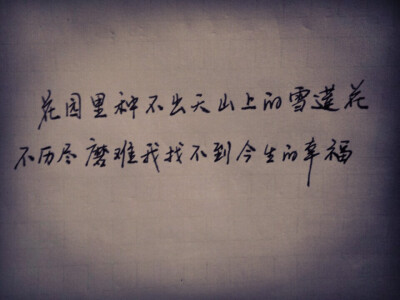 花园里种不出天山上的雪莲花
不历尽磨难我找不到今生的幸福